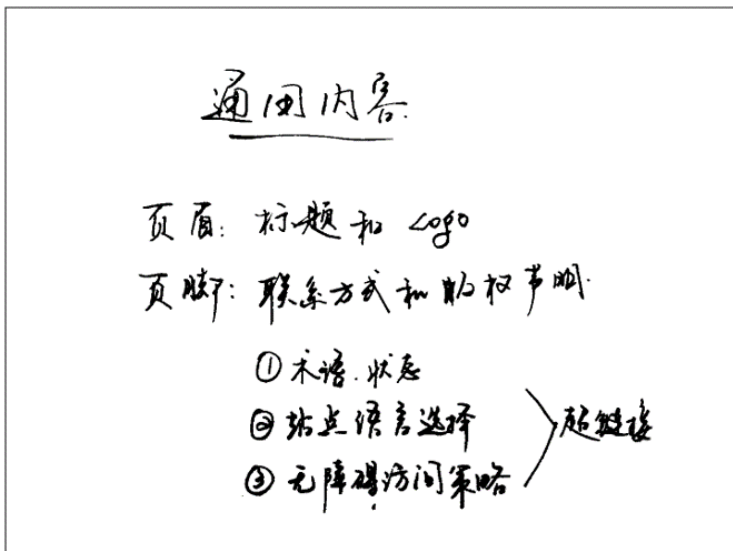 通用内容
页眉：标题和 Logo
页脚：联系方式和版权声明.
① 术语.状态
② 站点语言选择
③ 无障碍访问策略
超链接